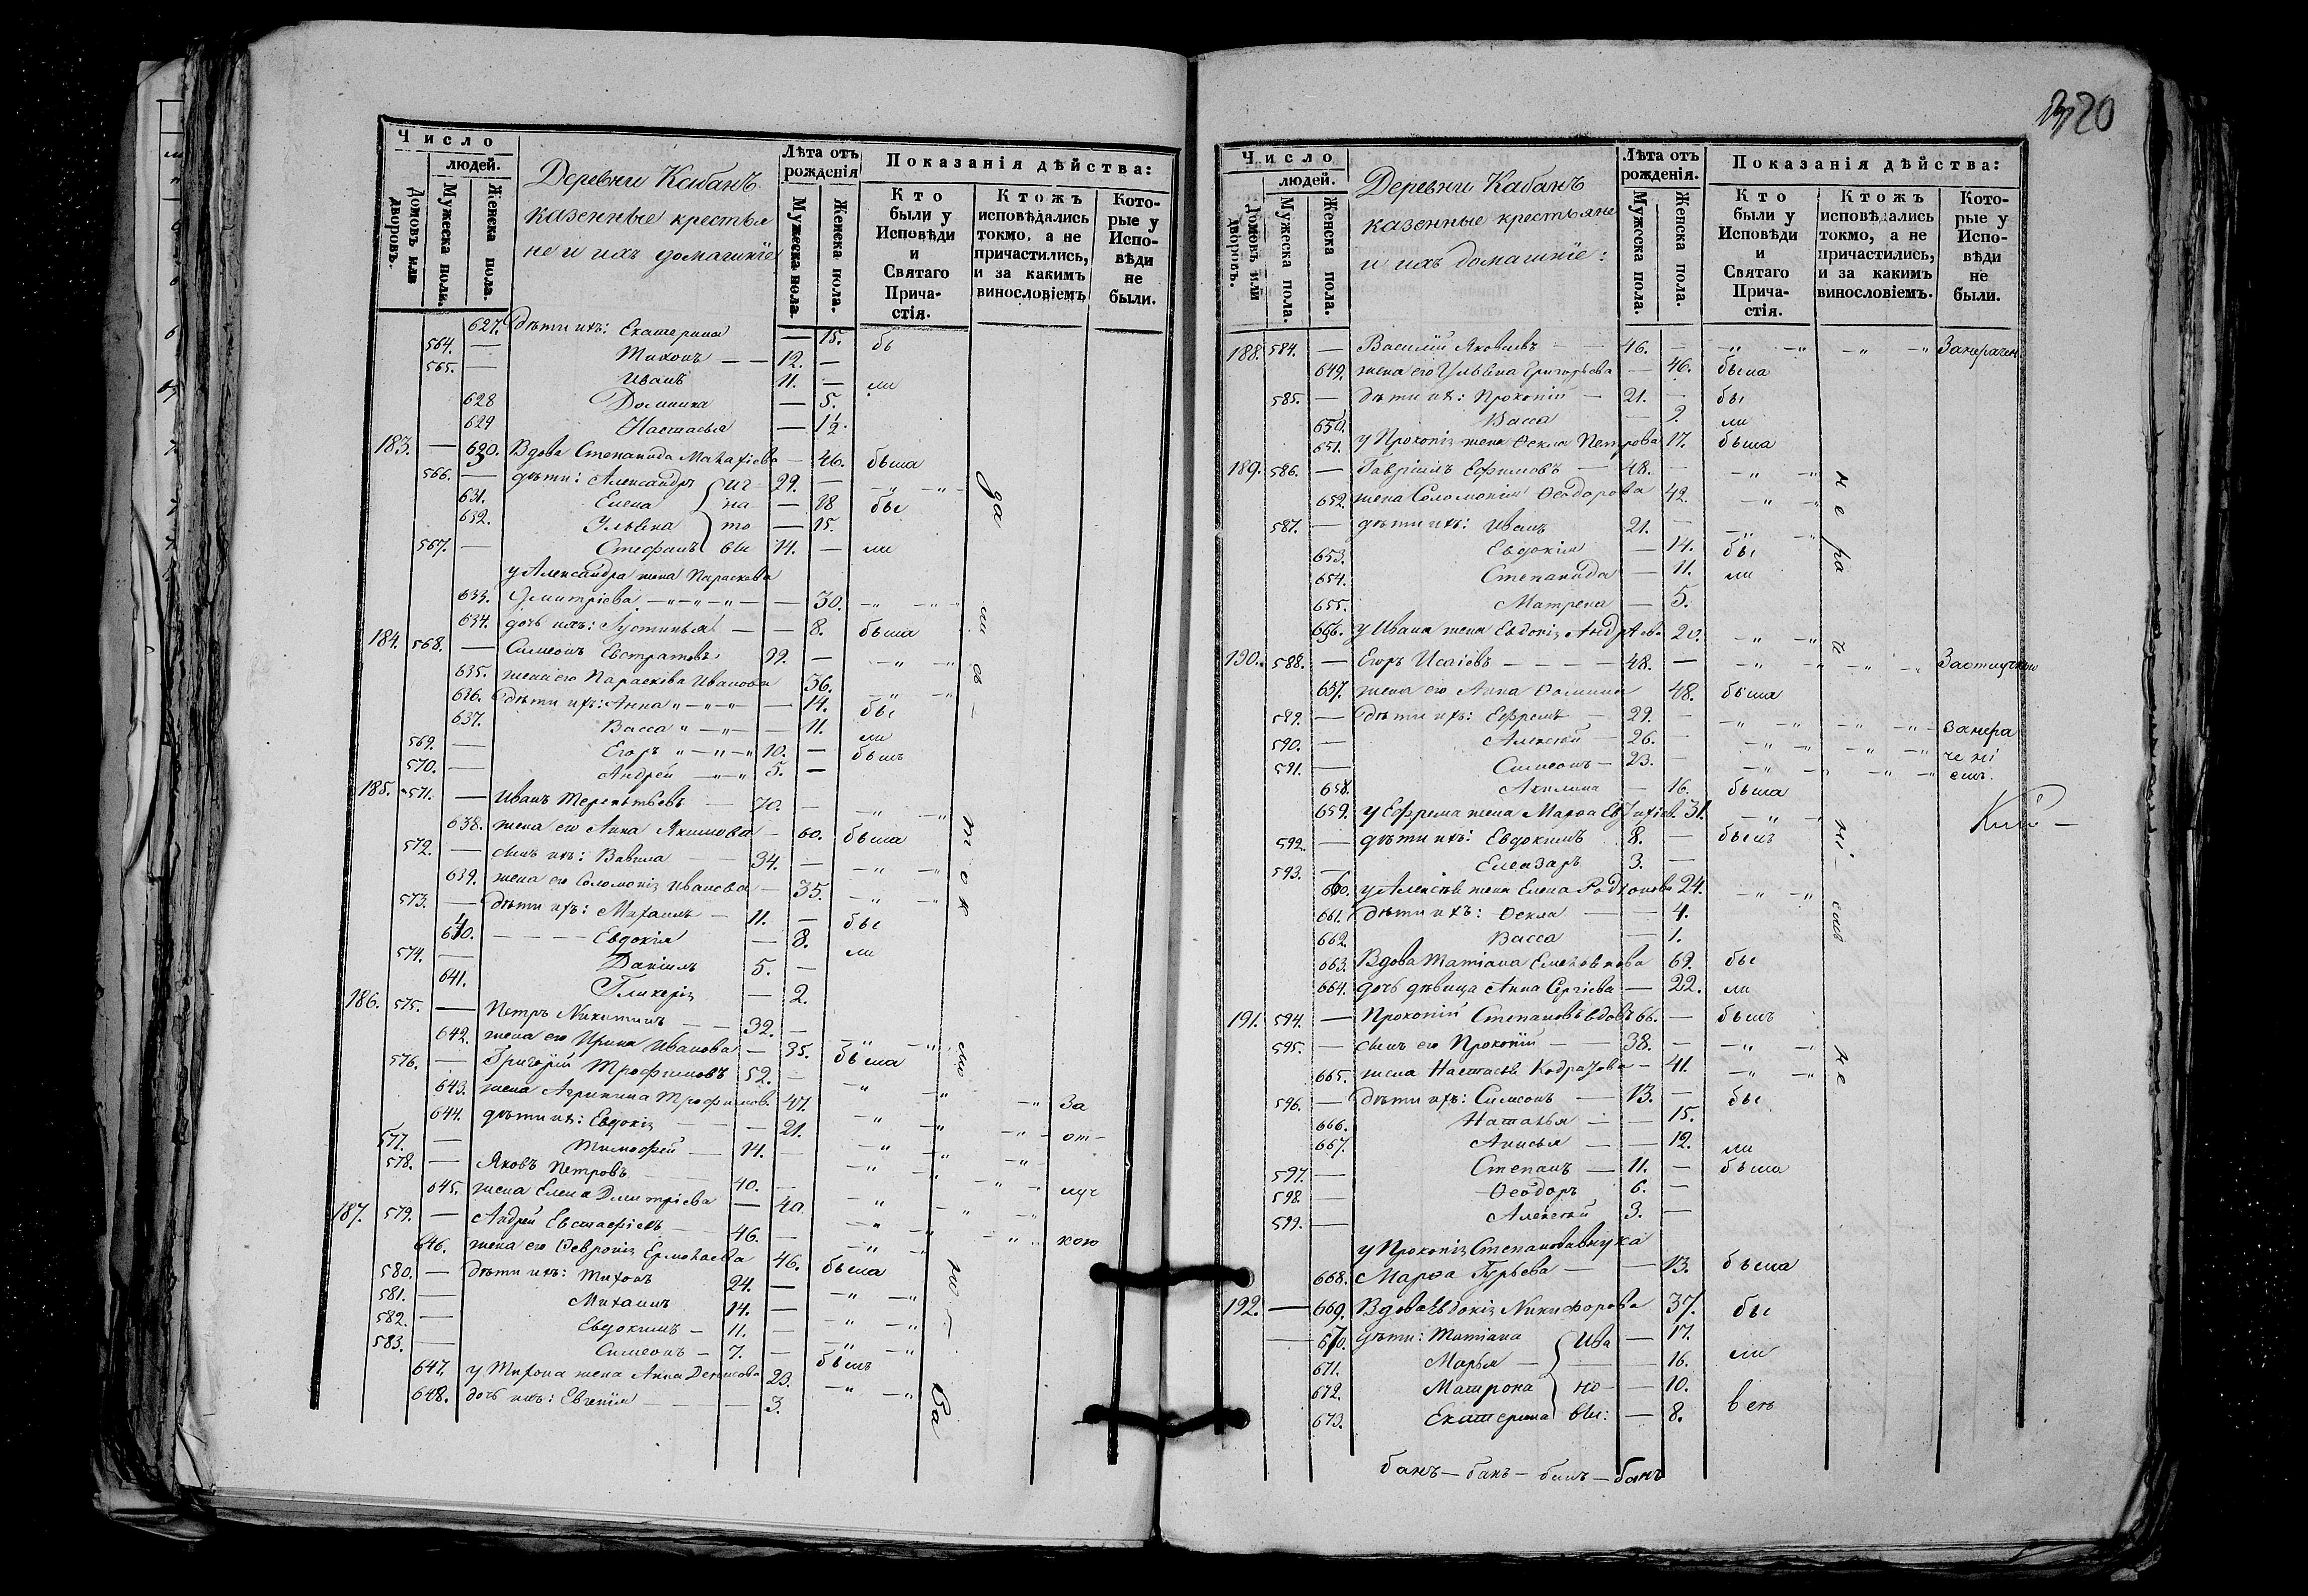 Число
людей.
Домовъ или дворовъ.
Мужеска пола.
Женска пола.
Деревни Кабанъ
казенные крестья
не и ихъ домашніе
Лѣта отъ рожденія
Мужеска пола.
Женска пола.
Показанія дѣйства:
Кто были у Исповѣди и Святаго Причастія.
Ктожъ исповѣдались токмо, а не причастились, и за какимъ винословіемъ
Которые у Исповѣди не были.
627. Дѣти ихъ: Екатерина — 15. бы
564. — Тихонъ — — 12. —
565. — Иванъ 11. — ли
628 Домника — 5.
629 Настасья — 1½.
183. — 630. Вдова Степанида Макарiева — 46. была
566. — дѣти: Александръ Иг 29. — -„- -„-
631. Елена на — 18 бы
632. Ульяна то — 15.
567. — Стефанъ вы 14. — ли
у Александра жена Параскева
633. Дмитріева -„-„-„- — 30. -„- -„-
634. дочь ихъ: Іустинья — — 8. была
184. 568. — Симеонъ Евстратовъ 39. — -„- -„-
635. жена его Параскева Иванова 36. -„- -„-
636. Дѣти ихъ: Анна „-„-„- — 14. бы
637. Васса „-„- — 11. ли
569. — Егоръ „-„-„ 10. — былъ
570. — Андрей -„-„ 5. —
185. 571. — Иванъ Терентьевъ — 70. — -„- -„-
638. жена его Анна Якимова — 60. была
572. — сынъ ихъ: Вавила — — 34. — -„- -„-
639. жена его Соломонія Иванова — 35. -„- -„-
573. — Дѣти ихъ: Михаилъ — 11. — бы
640. — — — Евдокія — 8. ли
574. — Даніилъ 5. —
641. Гликерія — 2.
186. 575. — Петръ Никитинъ — — 32. — -„- -„-
642. жена его Ирина Иванова — 35. была
576. — Григорій Трофимовъ 52. — -„- -„- -„ За
643. жена Агрипина Трофимова 47. -„ -„
644. дѣти их: Евдокія — — — 21. -„ -„- -„- от-
577. — Тимофей — 14. — -„ -„ -„-
578. — Яковъ Петровъ — 40. — -„ -„ луч
645. жена Елена Дмитріева — 40. -„ -„
187. 579. — Андрей Евстафіевъ — 46. — -„ -„ кою
646. жена его Февронія Ермолаева 46. была
580. — Дѣти ихъ: Тихонъ 24. — -„ -„
581. — Михаилъ 14. — -„ -„
582. — Евдокимъ — 11. — -„ -„
583. — Симеонъ — 7. — былъ
647. у Тихона жена Анна Денисова 23. -„ -„
648. дочь ихъ: Евгенія — — — 3.
320
Число
людей.
Домовъ или дворовъ.
Мужеска пола.
Женска пола.
Деревни Кабанъ
казенные крестьяне
и ихъ домашніе:
Лѣта отъ рожденія.
Мужеска пола.
Женска пола.
Показанія дѣйства:
Кто были у Исповѣди и Святаго Причастія.
Ктожъ исповѣдались токмо, а не причастились, и за какимъ винословіемъ.
Которые у Исповѣди не были.
188. 584. — Василій Яковлевъ — 46. — -„ -„ -„ -„ Занерачен
649. жена его Ульяна Григорьева — 46. была
585. — дѣти их: Прокопій — 21. — бы
650. Васса — 2. ли
651. у Прокопія жена Ѳекла Петрова 17. была
189. 586. — Гавріилъ Ефимовъ — 48. — -„ -„
652. жена Соломонія Ѳеодорова 42. -„ -„
587. — дѣти ихъ: Иванъ 21. — -„ -„
653. Евдокія — 14. бы
654. Степанида — 11. ли
655. Матрена — 5.
656. у Ивана жена Евдокія Андреева 20. -„ -„
190. 588. — Егоръ Исаіевъ — — — 48. — -„ -„ -„ Заотлучкою
657. жена его Анна Ѳомина 48. была
589. — Дѣти ихъ: Ефремъ — 29. — -„ -„ -„ -„ Занера
590. — Алексій — 26. — -„ -„ -„ -„ чені
591. — Симеонъ — 23. — -„ -„ -„ -„ емъ.
658. Акилина — 16. была
659. у Ефрема жена Марѳа Евтихіев. 31. -„ -„
592. — дѣти ихъ: Евдокимъ 8. — былъ
593. — Елеазаръ 3. —
660. у Алексѣя жена Елена Родіонова 24. -„ -„
661. Дѣти ихъ: Ѳекла — — 4.
662. Васса — 1.
663. Вдова Татіана 69. бы
664. дочь дѣвица Анна Сергіева — 22. ли
191. 594. — Прокопій Степановъ вдовъ 66. — былъ
595. — сынъ его Прокопій — — 38. — -„ -„
665. жена Настасья — 41. -„ -„
596. — Дѣти ихъ: Симеонъ — 13. — бы
666. Наталья — — 15.
667. Анисья — — 12. ли
597. — Степанъ — 11. — была
598. — Ѳеодоръ 6. —
599. — Алексій 3. —
у Прокопія Степанова внука
668. Марѳа Гурьева — — 13. была
192. — 669. Вдова Евдокія Никифорова 37. бы
670. дѣти: Татіана Ива — 17.
671. Марья — — 16. ли
672. Матрона но — 10.
673. Екатерина вы: — 8. всѣ
банъ — банъ — банъ — банъ